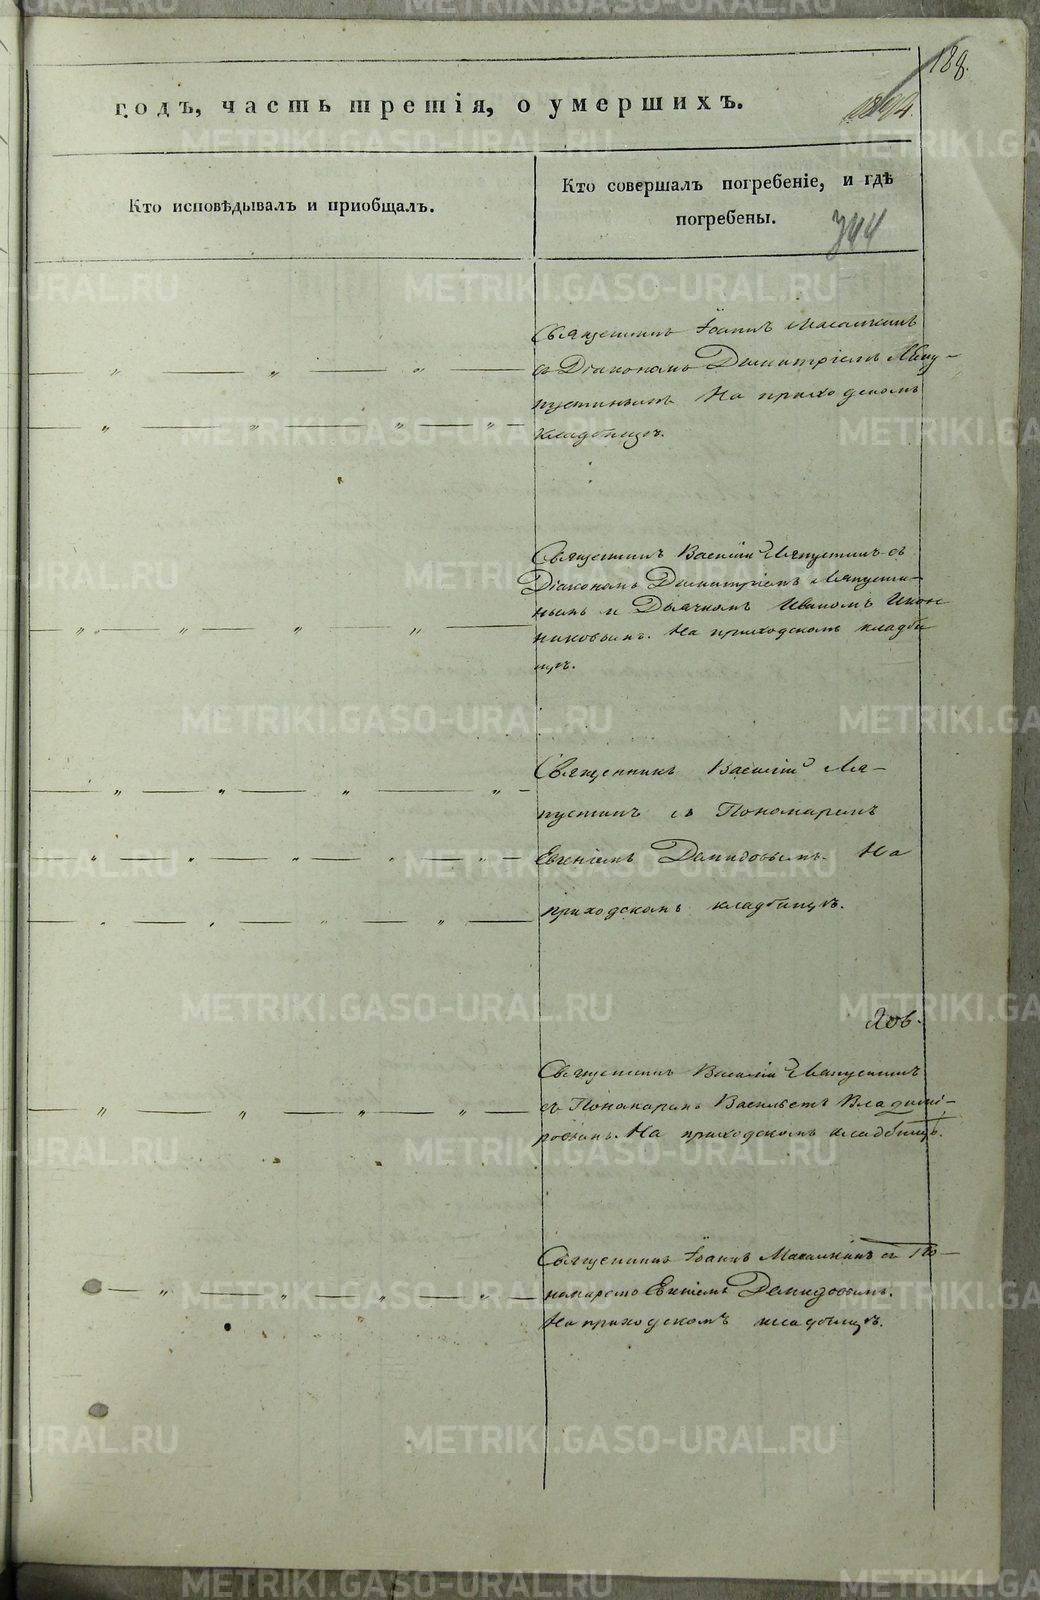 188.
годъ, часть третія, о умершихъ.
Кто исповѣдывалъ и пріобщалъ.
Кто совершалъ погребеніе, и гдѣ
погребены.
344
Священникъ Іоаннъ Масалкинъ
съ Діакономъ Димитріемъ Ляпу-
пустинымъ На приходскомъ
кладбищѣ.
Священникъ Василій Ляпустинъ съ
Діакономъ Димитріемъ Ляпусти-
нымъ и Дьячкомъ Иваномъ Икон
никовымъ. На приходскомъ кладби
щѣ.
Священникъ Василій Ля-
пустинъ съ Пономаремъ
Евгеніемъ Демидовымъ. На
приходскомъ кладбищѣ.
Священникъ Василій Ляпустинъ
съ Пономаремъ Васильемъ Владимі-
ровымъ. На приходскомъ кладбищѣ.
Священникъ Іоаннъ Масалкинъ съ По-
номаремъ Евгніемъ Демидовымъ.
На приходскомъ кладбищѣ.
METRIKI.GASO-URAL.RU